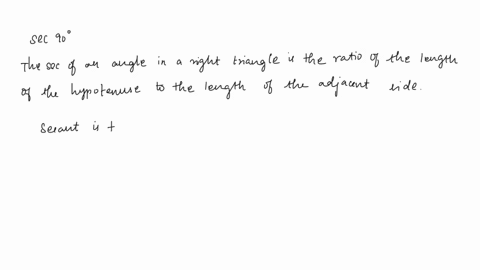 sec 90°
The sec of an angle in a right triangle is the ratio of the length
of the hypotenuse to the length of the adjacent side.
Secant is t